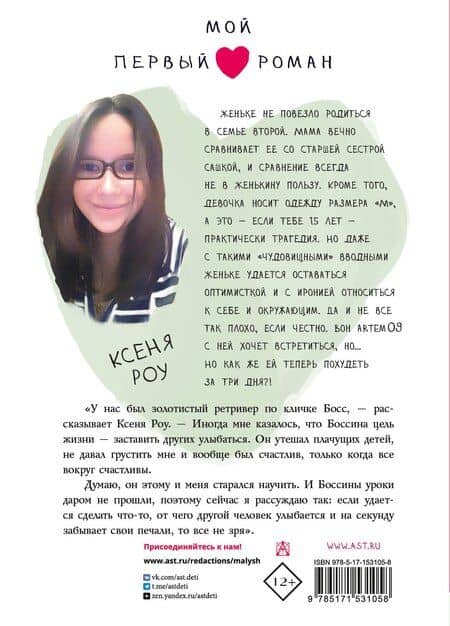 МОЙ
ПЕРВЫЙ РОМАН
ЖЕНЬКЕ НЕ ПОВЕЗЛО РОДИТЬСЯ
В СЕМЬЕ ВТОРОЙ. МАМА ВЕЧНО
СРАВНИВАЕТ ЕЕ СО СТАРШЕЙ СЕСТРОЙ
САШКОЙ, И СРАВНЕНИЕ ВСЕГДА
НЕ В ЖЕНЬКИНУ ПОЛЬЗУ. КРОМЕ ТОГО,
ДЕВОЧКА НОСИТ ОДЕЖДУ РАЗМЕРА «М»,
А ЭТО – ЕСЛИ ТЕБЕ 15 ЛЕТ –
ПРАКТИЧЕСКИ ТРАГЕДИЯ. НО ДАЖЕ
С ТАКИМИ «ЧУДОВИЩНЫМИ» ВВОДНЫМИ
ЖЕНЬКЕ УДАЕТСЯ ОСТАВАТЬСЯ
ОПТИМИСТКОЙ И С ИРОНИЕЙ ОТНОСИТЬСЯ
К СЕБЕ И ОКРУЖАЮЩИМ. ДА И НЕ ВСЕ
ТАК ПЛОХО, ЕСЛИ ЧЕСТНО. ВОН ARTEM09
С НЕЙ ХОЧЕТ ВСТРЕТИТЬСЯ, НО...
НО КАК ЖЕ ЕЙ ТЕПЕРЬ ПОХУДЕТЬ
ЗА ТРИ ДНЯ?!
КСЕНЯ
РОУ
«У нас был золотистый ретривер по кличке Босс, — рас-
сказывает Ксеня Роу. — Иногда мне казалось, что Боссина цель
жизни — заставить других улыбаться. Он утешал плачущих детей,
не давал грустить мне и вообще был счастлив, только когда все
вокруг счастливы.
Думаю, он этому и меня старался научить. И Боссины уроки
даром не прошли, поэтому сейчас я рассуждаю так: если удает-
ся сделать что-то, от чего другой человек улыбается и на секунду
забывает свои печали, то все не зря».
Присоединяйтесь к нам!
www.ast.ru/redactions/malysh
vk.com/ast.deti
t.me/astdeti
zen.yandex.ru/astdeti
12+
WWW.AST.RU
ISBN 978-5-17-153105-8
9 785171 531058